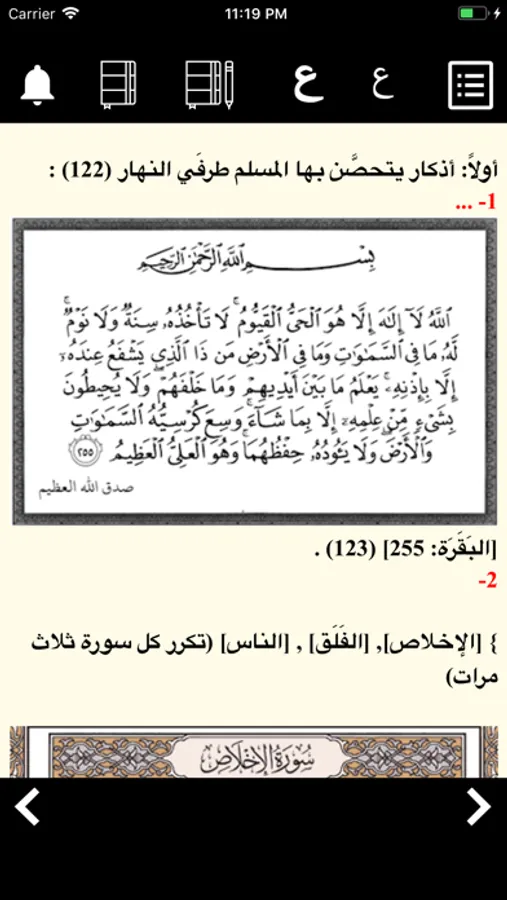 Carrier 11:19 PM
ع ع
أولاً: أذكار يتحصَّن بها المسلم طرفَي النهار (122) :
1- ...
بِسْمِ اللَّهِ الرَّحْمَٰنِ الرَّحِيمِ
اللَّهُ لَآ إِلَٰهَ إِلَّا هُوَ الْحَيُّ الْقَيُّومُ ۚ لَا تَأْخُذُهُۥ سِنَةٌ وَلَا نَوْمٌ ۚ
لَّهُۥ مَا فِي السَّمَٰوَٰتِ وَمَا فِي الْأَرْضِ مَن ذَا الَّذِي يَشْفَعُ عِندَهُۥٓ
إِلَّا بِإِذْنِهِۦ ۚ يَعْلَمُ مَا بَيْنَ أَيْدِيهِمْ وَمَا خَلْفَهُمْ ۖ وَلَا يُحِيطُونَ
بِشَيْءٍ مِّنْ عِلْمِهِۦٓ إِلَّا بِمَا شَآءَ ۚ وَسِعَ كُرْسِيُّهُ السَّمَٰوَٰتِ
وَالْأَرْضَ ۖ وَلَا يَـُٔودُهُۥ حِفْظُهُمَا ۚ وَهُوَ الْعَلِيُّ الْعَظِيمُ ٢٥٥
صدق الله العظيم
[البَقَرَة: 255] (123) .
2-
} [الإخلاص], [الفَلَق] , [الناس] (تكرر كل سورة ثلاث
مرات)
سُورَةُ الإِخْلَاصِ